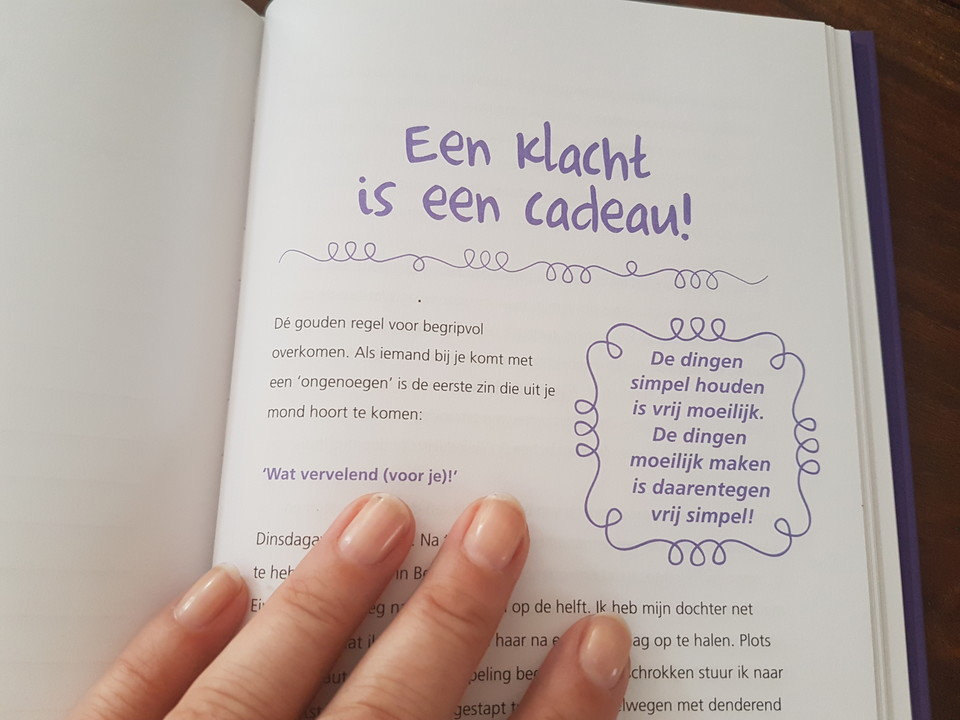 Een klacht
is een cadeau!
Dé gouden regel voor begripvol
overkomen. Als iemand bij je komt met
een ‘ongenoegen’ is de eerste zin die uit je
mond hoort te komen:
‘Wat vervelend (voor je)!’
De dingen
simpel houden
is vrij moeilijk.
De dingen
moeilijk maken
is daarentegen
vrij simpel!
Na
te in
op de helft. Ik heb mijn dochter net
haar na op te halen. Plots
stuur ik naar
met denderend